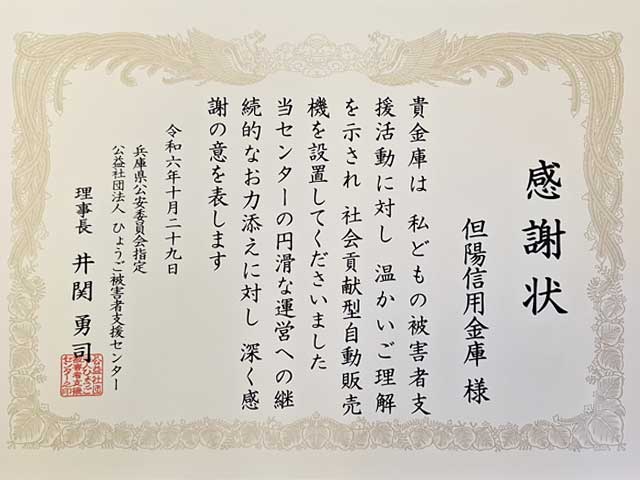 感謝状
但陽信用金庫 様
貴金庫は 私どもの被害者支
援活動に対し 温かいご理解
を示され 社会貢献型自動販売
機を設置してくださいました
当センターの円滑な運営への継
続的なお力添えに対し 深く感
謝の意を表します
令和六年十月二十九日
兵庫県公安委員会指定
公益社団法人 ひょうご被害者支援センター
理事長 井関 勇司
公益社団
法人ひょうご
被害者支援
センター之印